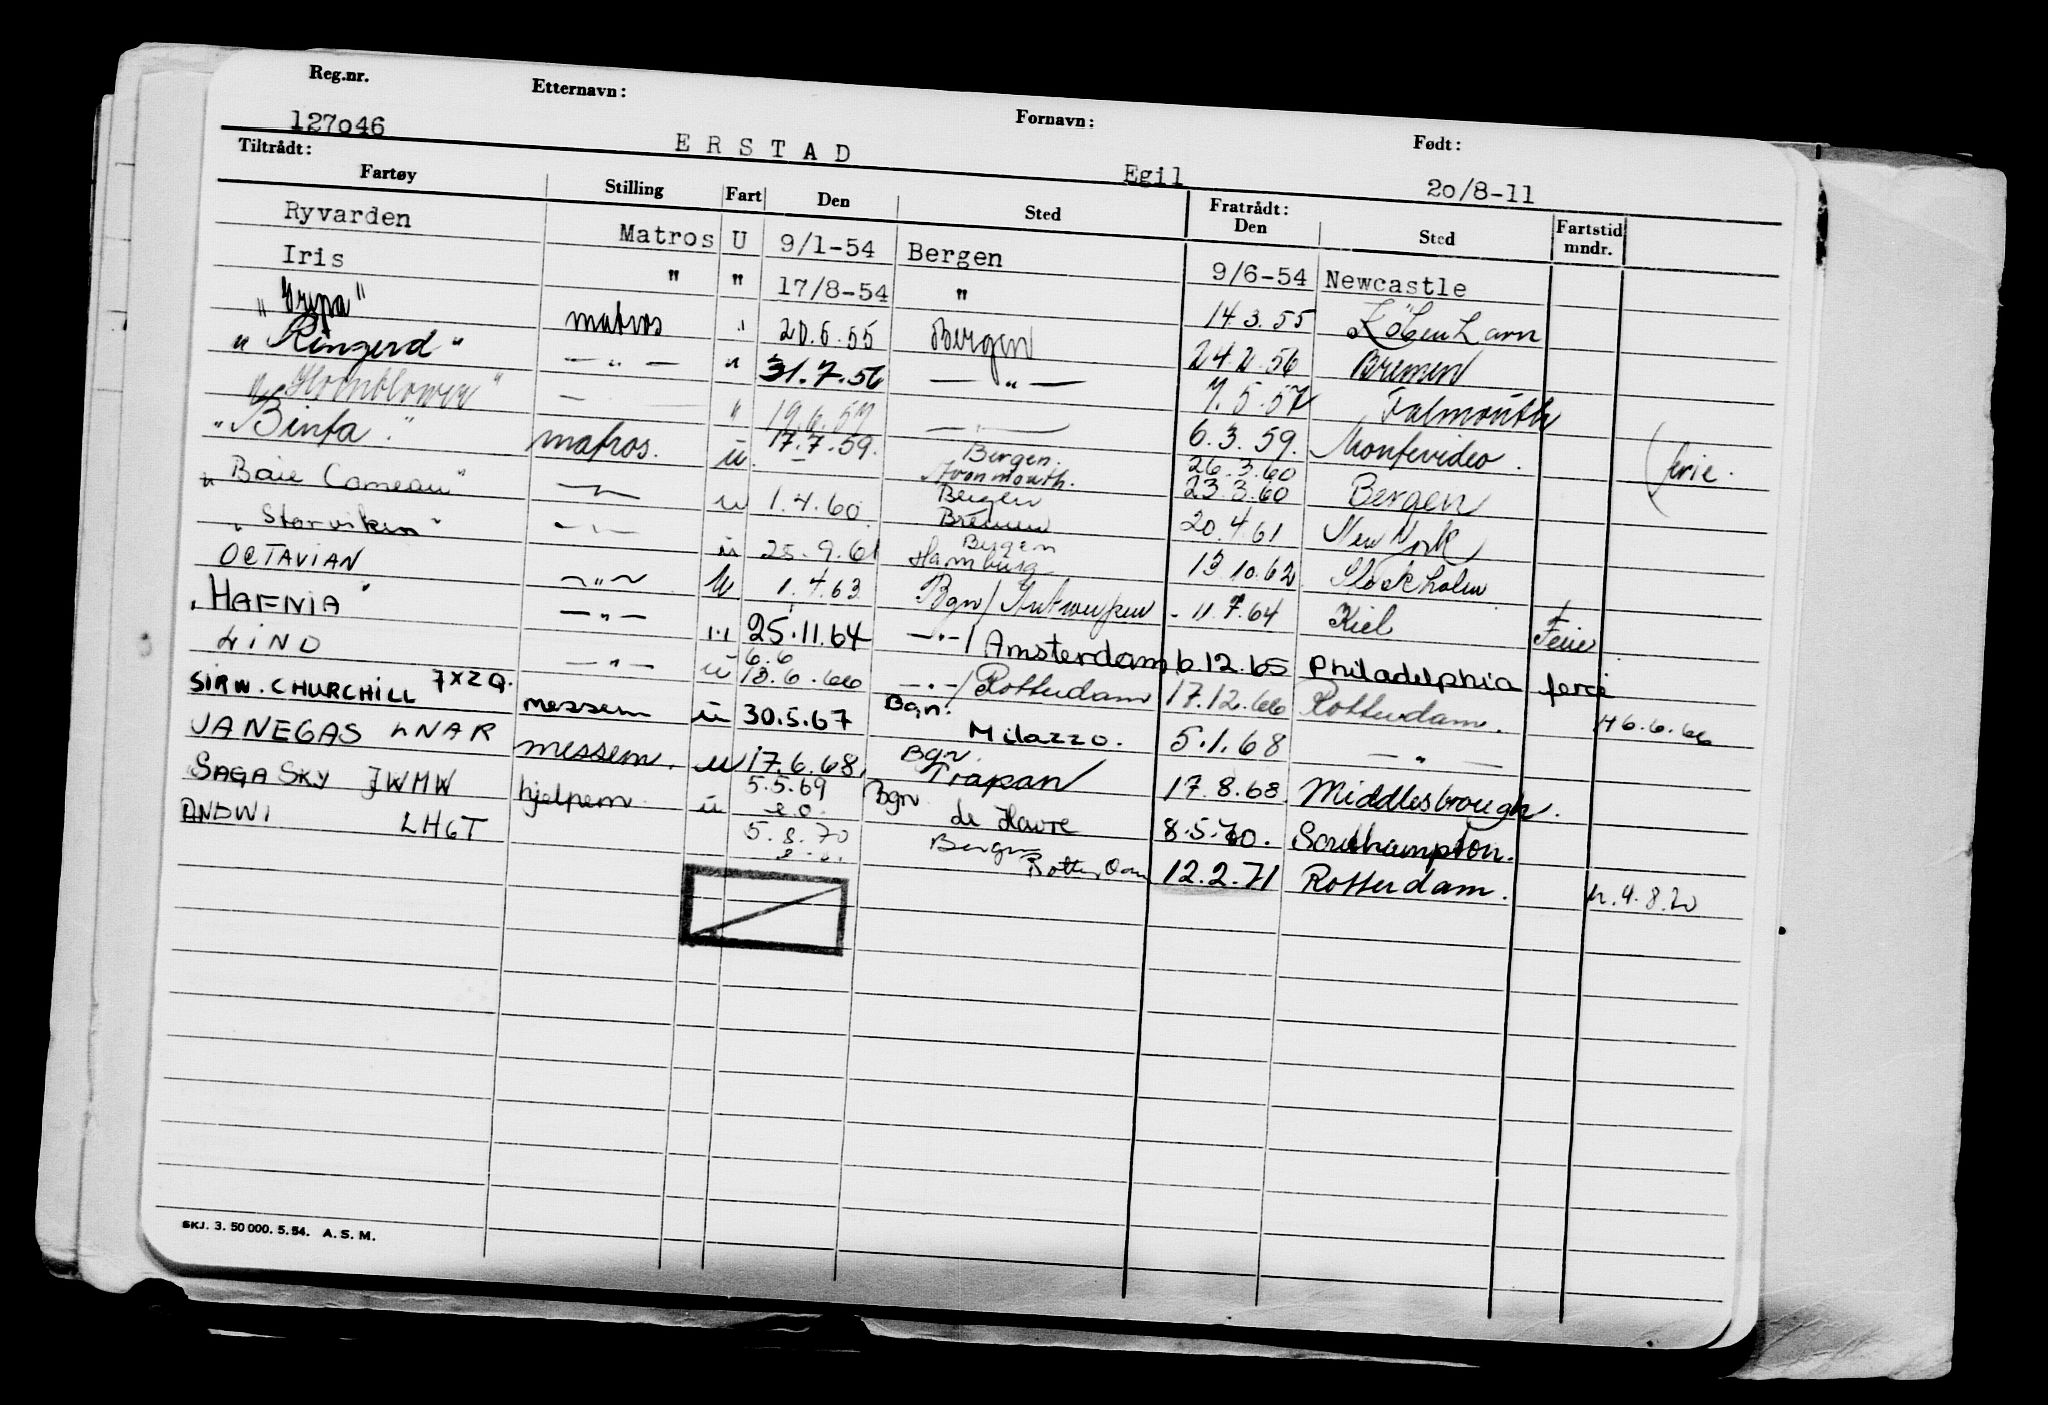 Reg.nr. Etternavn: Fornavn: Født:
127046 ERSTAD Egil 20/8-11
Tiltrådt: Fratrådt:
Fartøy Stilling Fart Den Sted Den Sted Fartstid mndr.
Ryvarden Matros U 9/1-54 Bergen 9/6-54 Newcastle
Iris " " 17/8-54 " 14.3.55 København
"Gripa" matros " 20.6.55 Bergen 24.2.56 Bremen
"Ringerd" — " — " 31.7.56 — " — 7.5.57 Falmouth
"Hornblower" — " 19.6.57 — " — 6.3.59. Montevideo. ferie.
"Binta." matros. u 17.7.59. Bergen. Avonmouth. 26.3.60 23.3.60 Bergen
"Baie Comeau" — " — u 1.4.60. Bergen Bremen 20.4.61 New York
"Storviken" — " — u 25.9.61 Bergen Hamburg 13.10.62 Stockholm
OCTAVIAN — " — u 1.4.63 Bgn/Antwerpen - 11.7.64 Kiel Ferie
"HAFNIA" — " — " 25.11.64 — " —/Amsterdam 6.12.65 Philadelphia ferie
LIND — " — u 6.6 13.6.66 — " —/Rotterdam 17.12.66 Rotterdam. H 6.6.66
SIR W. CHURCHILL JXZQ. messem u 30.5.67 Bgn. Milazzo. 5.1.68 — " —
VANEGAS LNAR messem. u 17.6.68. Bgn Trapan 17.8.68. Middlesbrough.
SAGA SKY JWMW hjelpem u 5.5.69 Bgn le Havre 8.5.70. Southampton.
ANDWI LHGT 5.8.70 Bergen Rotterdam 12.2.71 Rotterdam. h.4.8.70
SKJ. 3. 50 000. 5.54. A. S. M.